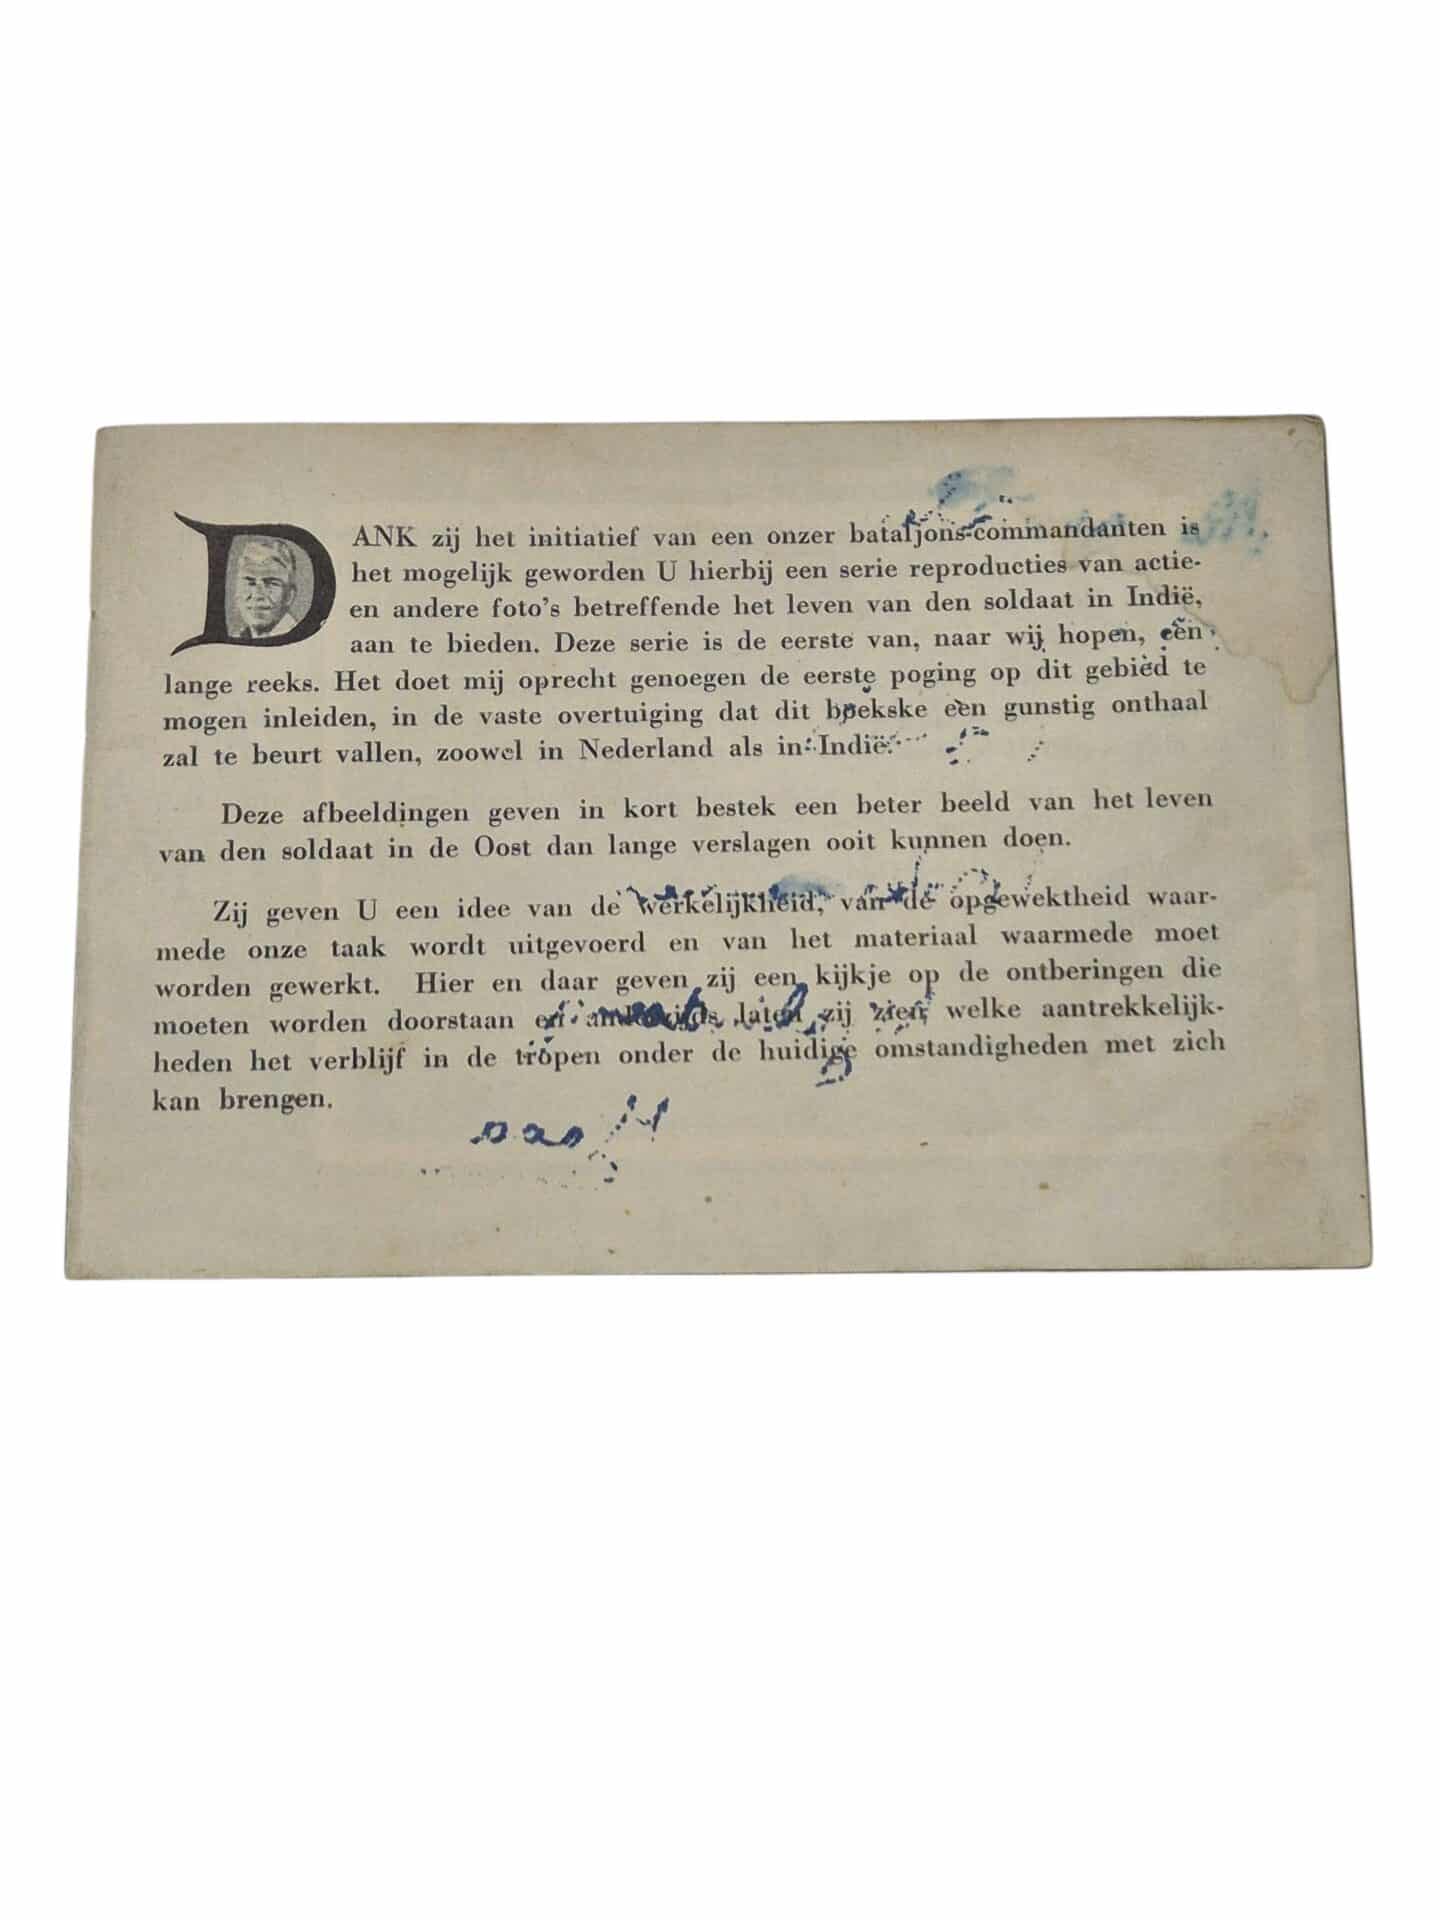 DANK zij het initiatief van een onzer bataljons-commandanten is
het mogelijk geworden U hierbij een serie reproducties van actie-
en andere foto's betreffende het leven van den soldaat in Indië,
aan te bieden. Deze serie is de eerste van, naar wij hopen, een
lange reeks. Het doet mij oprecht genoegen de eerste poging op dit gebied te
mogen inleiden, in de vaste overtuiging dat dit boekske een gunstig onthaal
zal te beurt vallen, zoowel in Nederland als in Indië.
Deze afbeeldingen geven in kort bestek een beter beeld van het leven
van den soldaat in de Oost dan lange verslagen ooit kunnen doen.
Zij geven U een idee van de werkelijkheid, van de opgewektheid waar-
mede onze taak wordt uitgevoerd en van het materiaal waarmede moet
worden gewerkt. Hier en daar geven zij een kijkje op de ontberingen die
moeten worden doorstaan en anderzijds laten zij zien welke aantrekkelijk-
heden het verblijf in de tropen onder de huidige omstandigheden met zich
kan brengen.